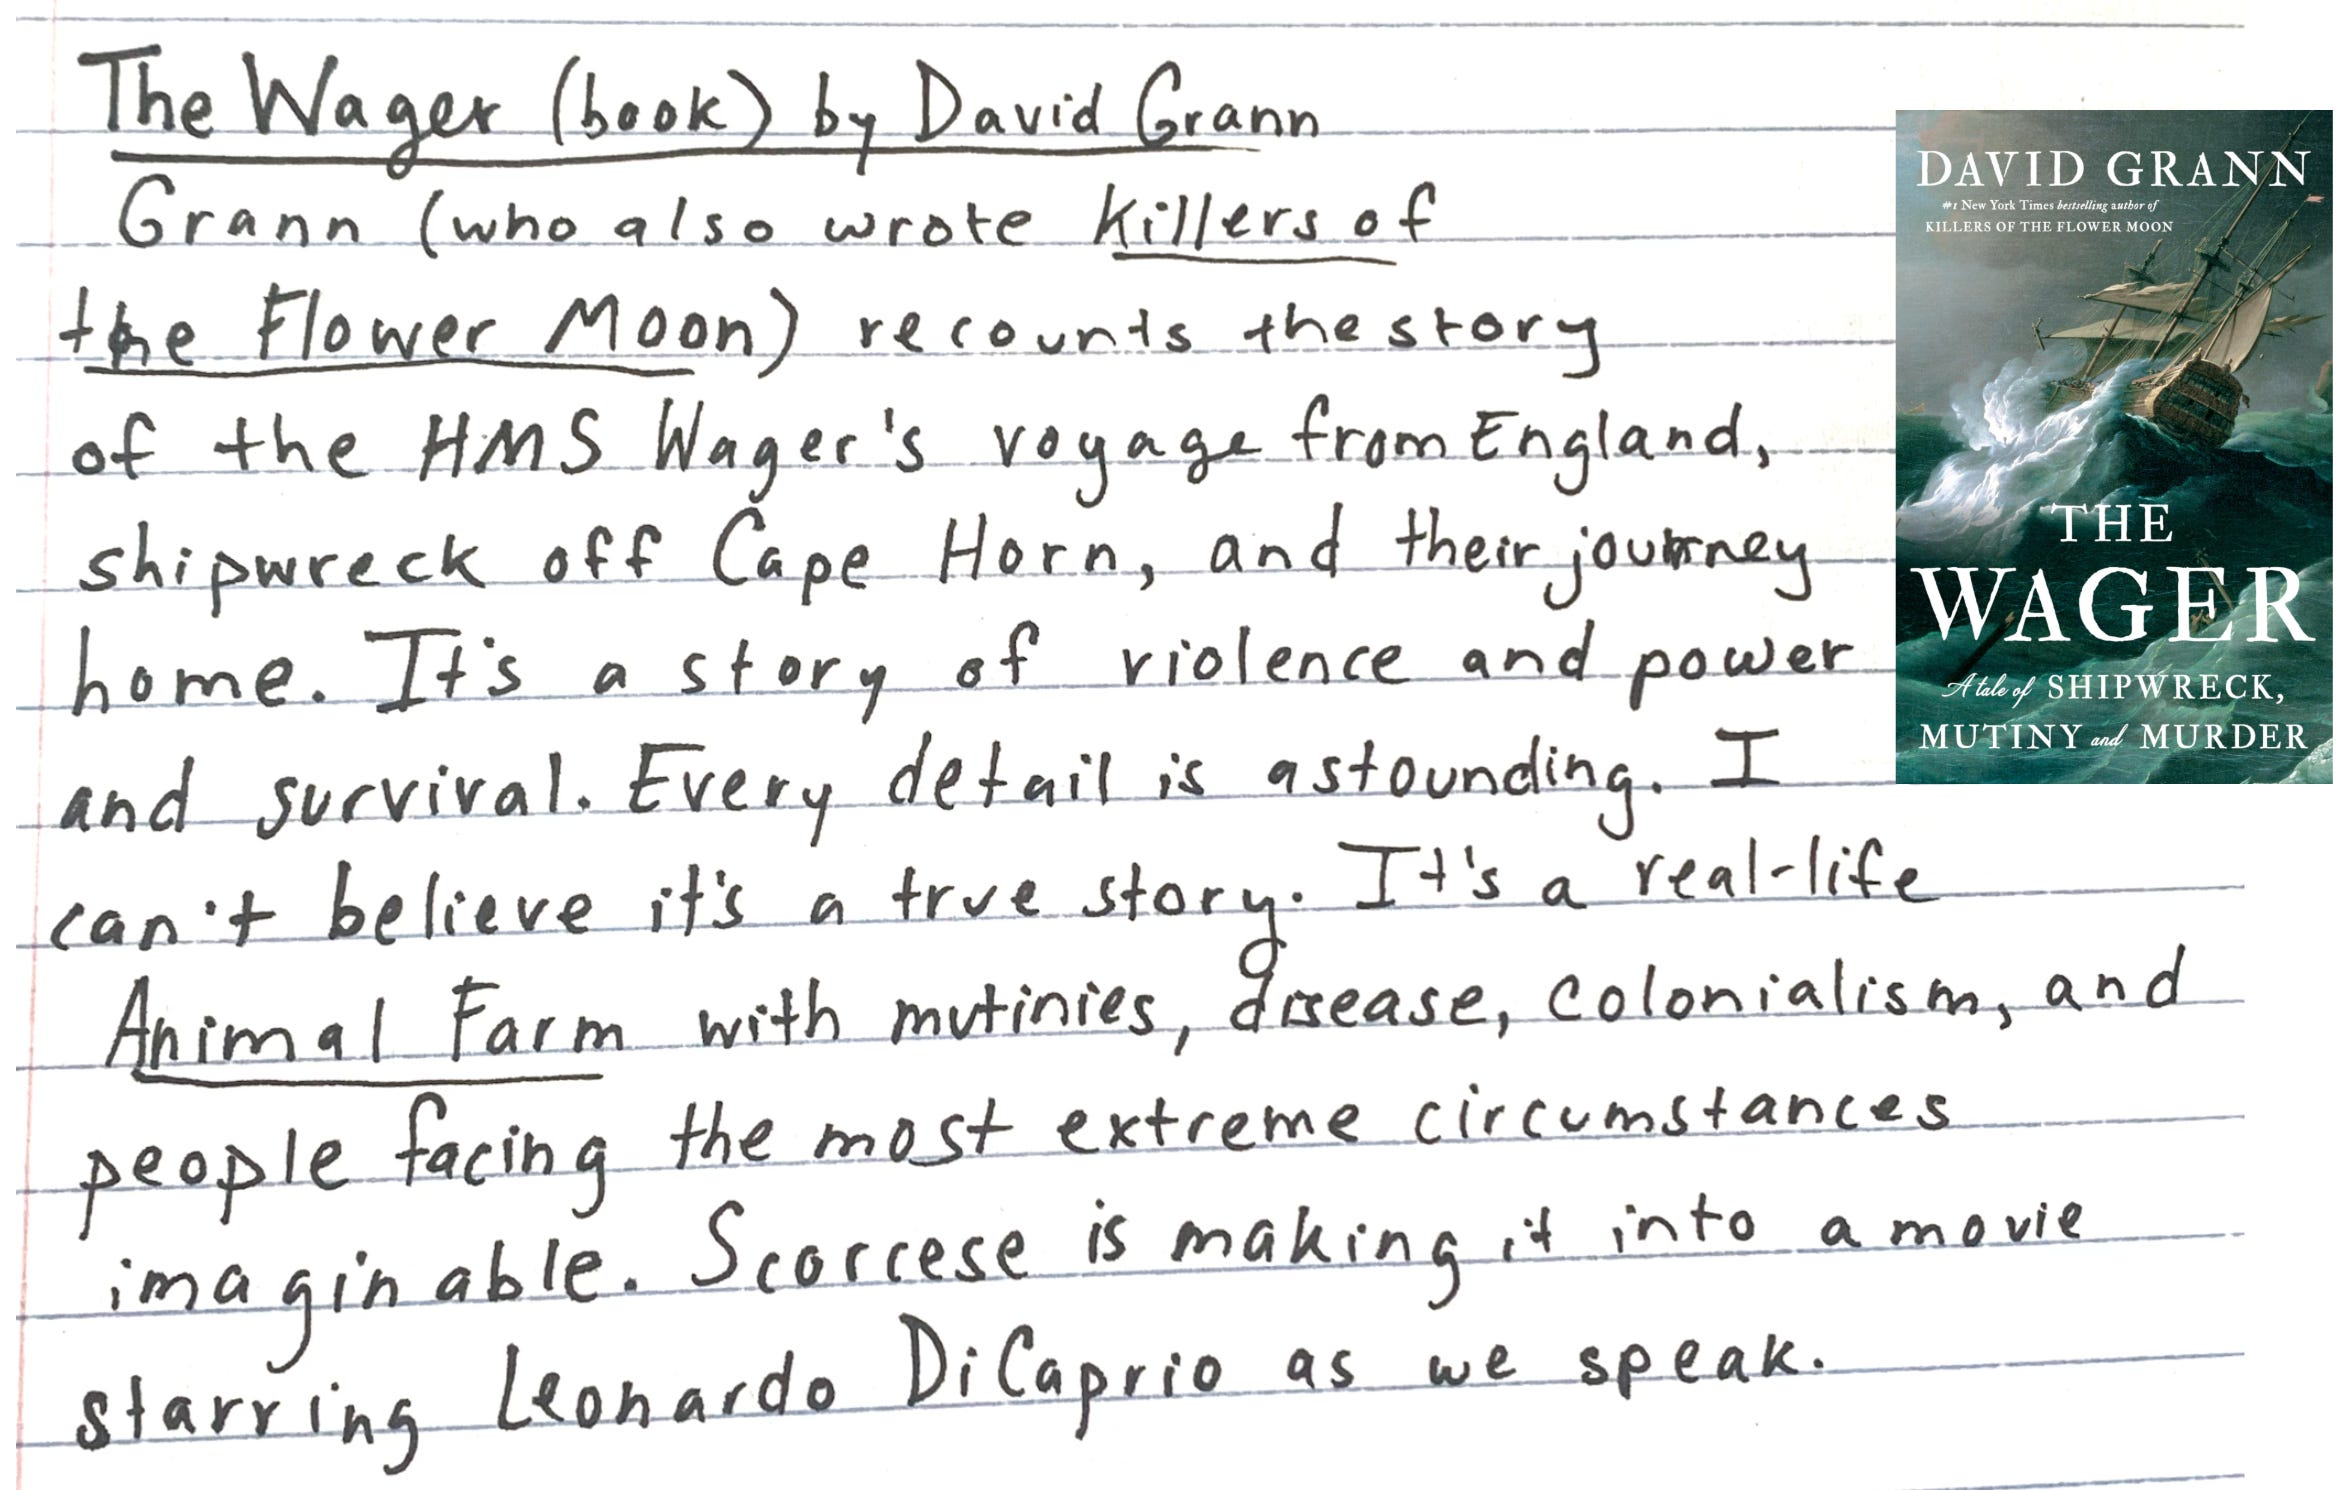 The Wager (book) by David Grann
Grann (who also wrote Killers of
the Flower Moon) recounts the story
of the HMS Wager's voyage from England,
shipwreck off Cape Horn, and their journey
home. It's a story of violence and power
and survival. Every detail is astounding. I
can't believe it's a true story. It's a real-life
Animal Farm with mutinies, disease, colonialism, and
people facing the most extreme circumstances
imaginable. Scorcese is making it into a movie
starring Leonardo DiCaprio as we speak.
DAVID GRANN
#1 New York Times bestselling author of
KILLERS OF THE FLOWER MOON
THE
WAGER
A tale of SHIPWRECK,
MUTINY and MURDER